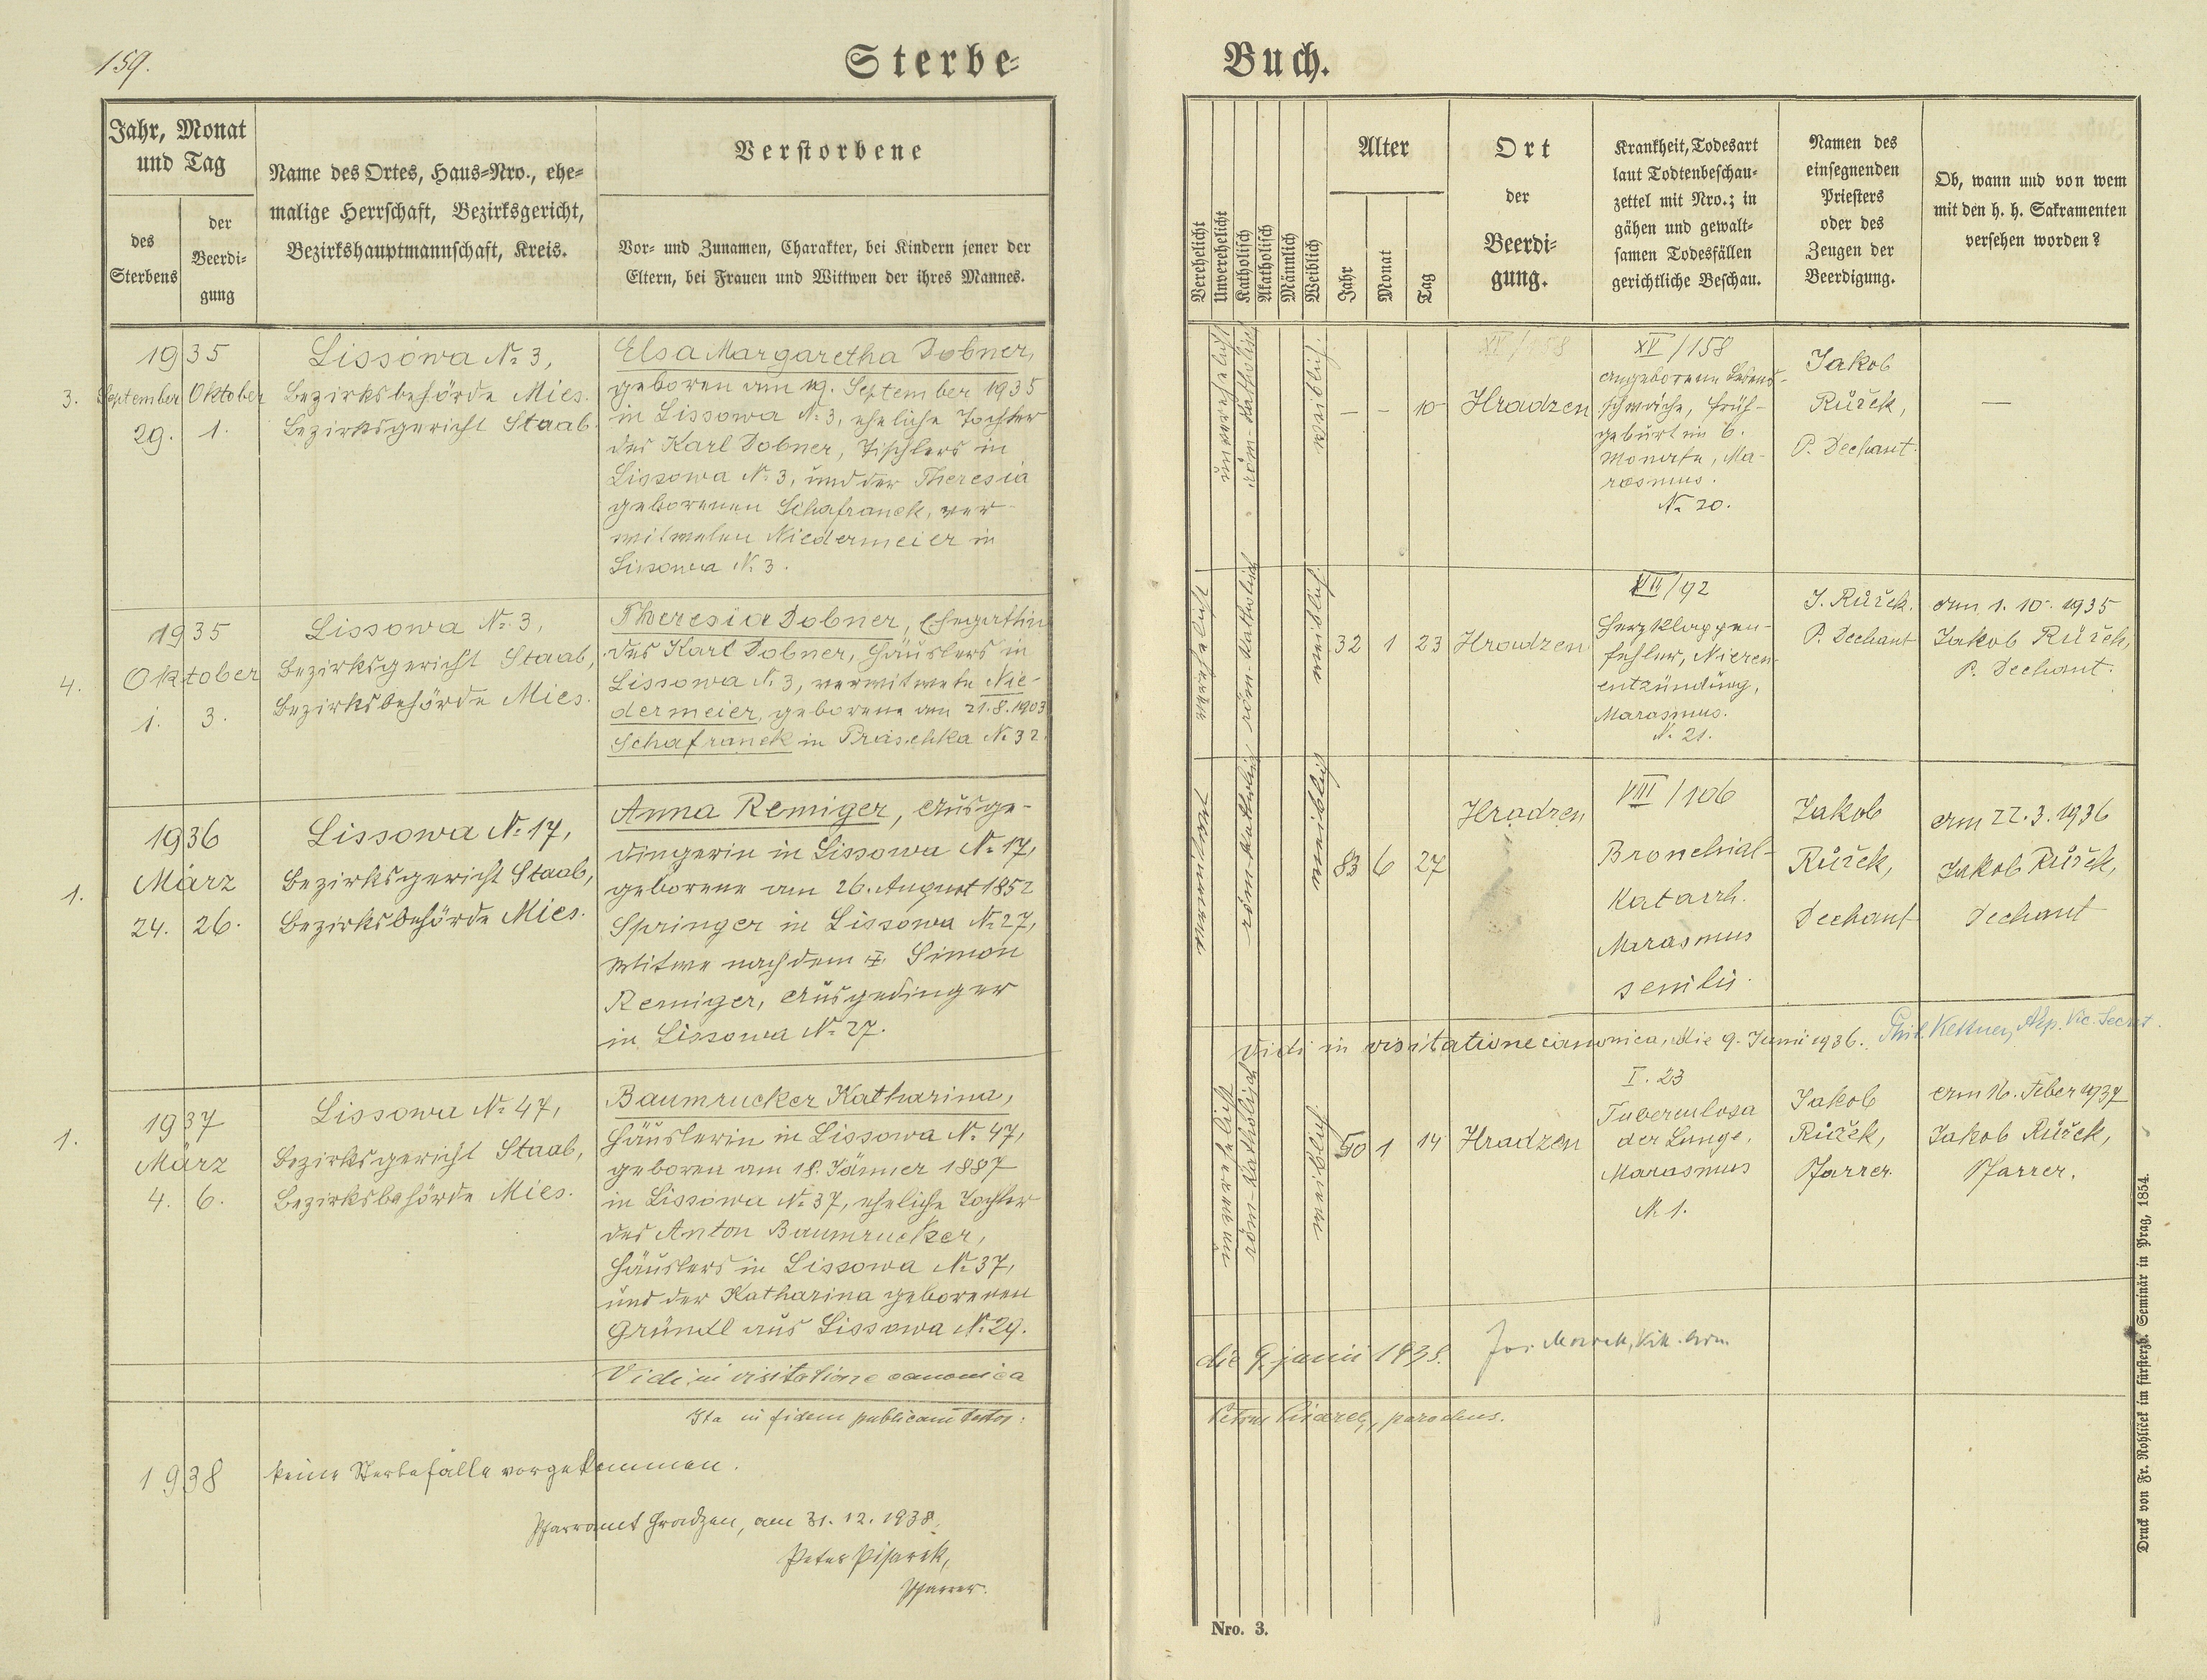 159.
Sterbe-
Buch.
Jahr, Monat
und Tag
des
Sterbens
der
Beerdi-
gung
Name des Ortes, Haus-Nro., ehe-
malige Herrschaft, Bezirksgericht,
Bezirkshauptmannschaft, Kreis.
Verstorbene
Vor- und Zunamen, Charakter, bei Kindern jener der
Eltern, bei Frauen und Wittwen der ihres Mannes.
Verehelicht
Unverehelicht
Katholisch
Akatholisch
Männlich
Weiblich
Alter
Jahr
Monat
Tag
Ort
der
Beerdi-
gung.
Krankheit, Todesart
laut Todtenbeschau-
zettel mit Nro.; in
gähen und gewalt-
samen Todesfällen
gerichtliche Beschau.
Namen des
einsegnenden
Priesters
oder des
Zeugen der
Beerdigung.
Ob, wann und von wem
mit den h. h. Sakramenten
versehen worden?
3.
1935
September Oktober
29. 1.
Lissowa № 3,
Bezirksbehörde Mies.
Bezirksgericht Staab.
Elsa Margaretha Dobner,
geboren am 19. September 1935
in Lissowa № 3, eheliche Tochter
des Karl Dobner, Tischlers in
Lissowa № 3, und der Theresia
geborenen Schafranek, ver-
witweten Niedermeier in
Lissowa № 3.
unverehelicht
röm-katholisch
weiblich
— – 10
XV/158
Hradzen
XV/158
angeborene Lebens-
schwäche, Früh-
geburt im 6.
Monate, Ma-
rasmus.
№ 20.
Jakob
Růžek,
P. Dechant.
—
4.
1935
Oktober
1. 3.
Lissowa № 3,
Bezirksgericht Staab,
Bezirksbehörde Mies.
Theresia Dobner, Ehegattin
des Karl Dobner, Häuslers in
Lissowa № 3, verwitwete Nie-
dermeier, geborene am 21.8.1903
Schafranek in Praschka № 32.
röm-katholisch
weiblich
32 1 23
Hradzen
VII/92
Herzklappen-
fehler, Nieren-
entzündung,
Marasmus.
№ 21.
J. Růžek.
P. Dechant
am 1. 10. 1935
Jakob Růžek,
P. Dechant.
1.
1936
März
24. 26.
Lissowa № 17,
Bezirksgericht Staab,
Bezirksbehörde Mies.
Anna Remiger, Ausge-
dingerin in Lissowa № 17,
geborene am 26. August 1852
Springer in Lissowa № 27,
Witwe nach dem Simon
Remiger, Ausgedinger
in Lissowa № 27.
verwitwet
röm-katholisch
weiblich
83 6 27
Hradzen
VIII/106
Bronchial-
Katarrh.
Marasmus
senilis.
Jakob
Růžek,
Dechant
am 22. 3. 1936
Jakob Růžek,
Dechant
Vidi in visitatione canonica, die 9. Junii 1936. Kettner,
1.
1937
März
4. 6.
Lissowa № 47,
Bezirksgericht Staab,
Bezirksbehörde Mies.
Baumrucker Katharina,
Häuslerin in Lissowa № 47,
geboren am 18. Jänner 1887
in Lissowa № 37, eheliche Tochter
des Anton Baumrucker,
Häuslers in Lissowa № 37,
und der Katharina geborenen
Gründl aus Lissowa № 29.
unverehelicht
röm-katholisch
weiblich
50 1 14
Hradzen
I. 23
Tuberculosa
der Lunge,
Marasmus
№ 1.
Jakob
Růžek,
Pfarrer.
am 16. Feber 1937
Jakob Růžek,
Pfarrer.
Vidi in visitatione canonica
die 9. junii 1938.
Ita in fidem publicam testor:
parochus.
1938
keine Sterbefälle vorgekommen.
Pfarramt Hradzen, am 31. 12. 1938.
Peter Pisarek,
Pfarrer.
Nro. 3.
Druck von Fr. Rohlíček im fürsterzb. Seminär in Prag, 1854.